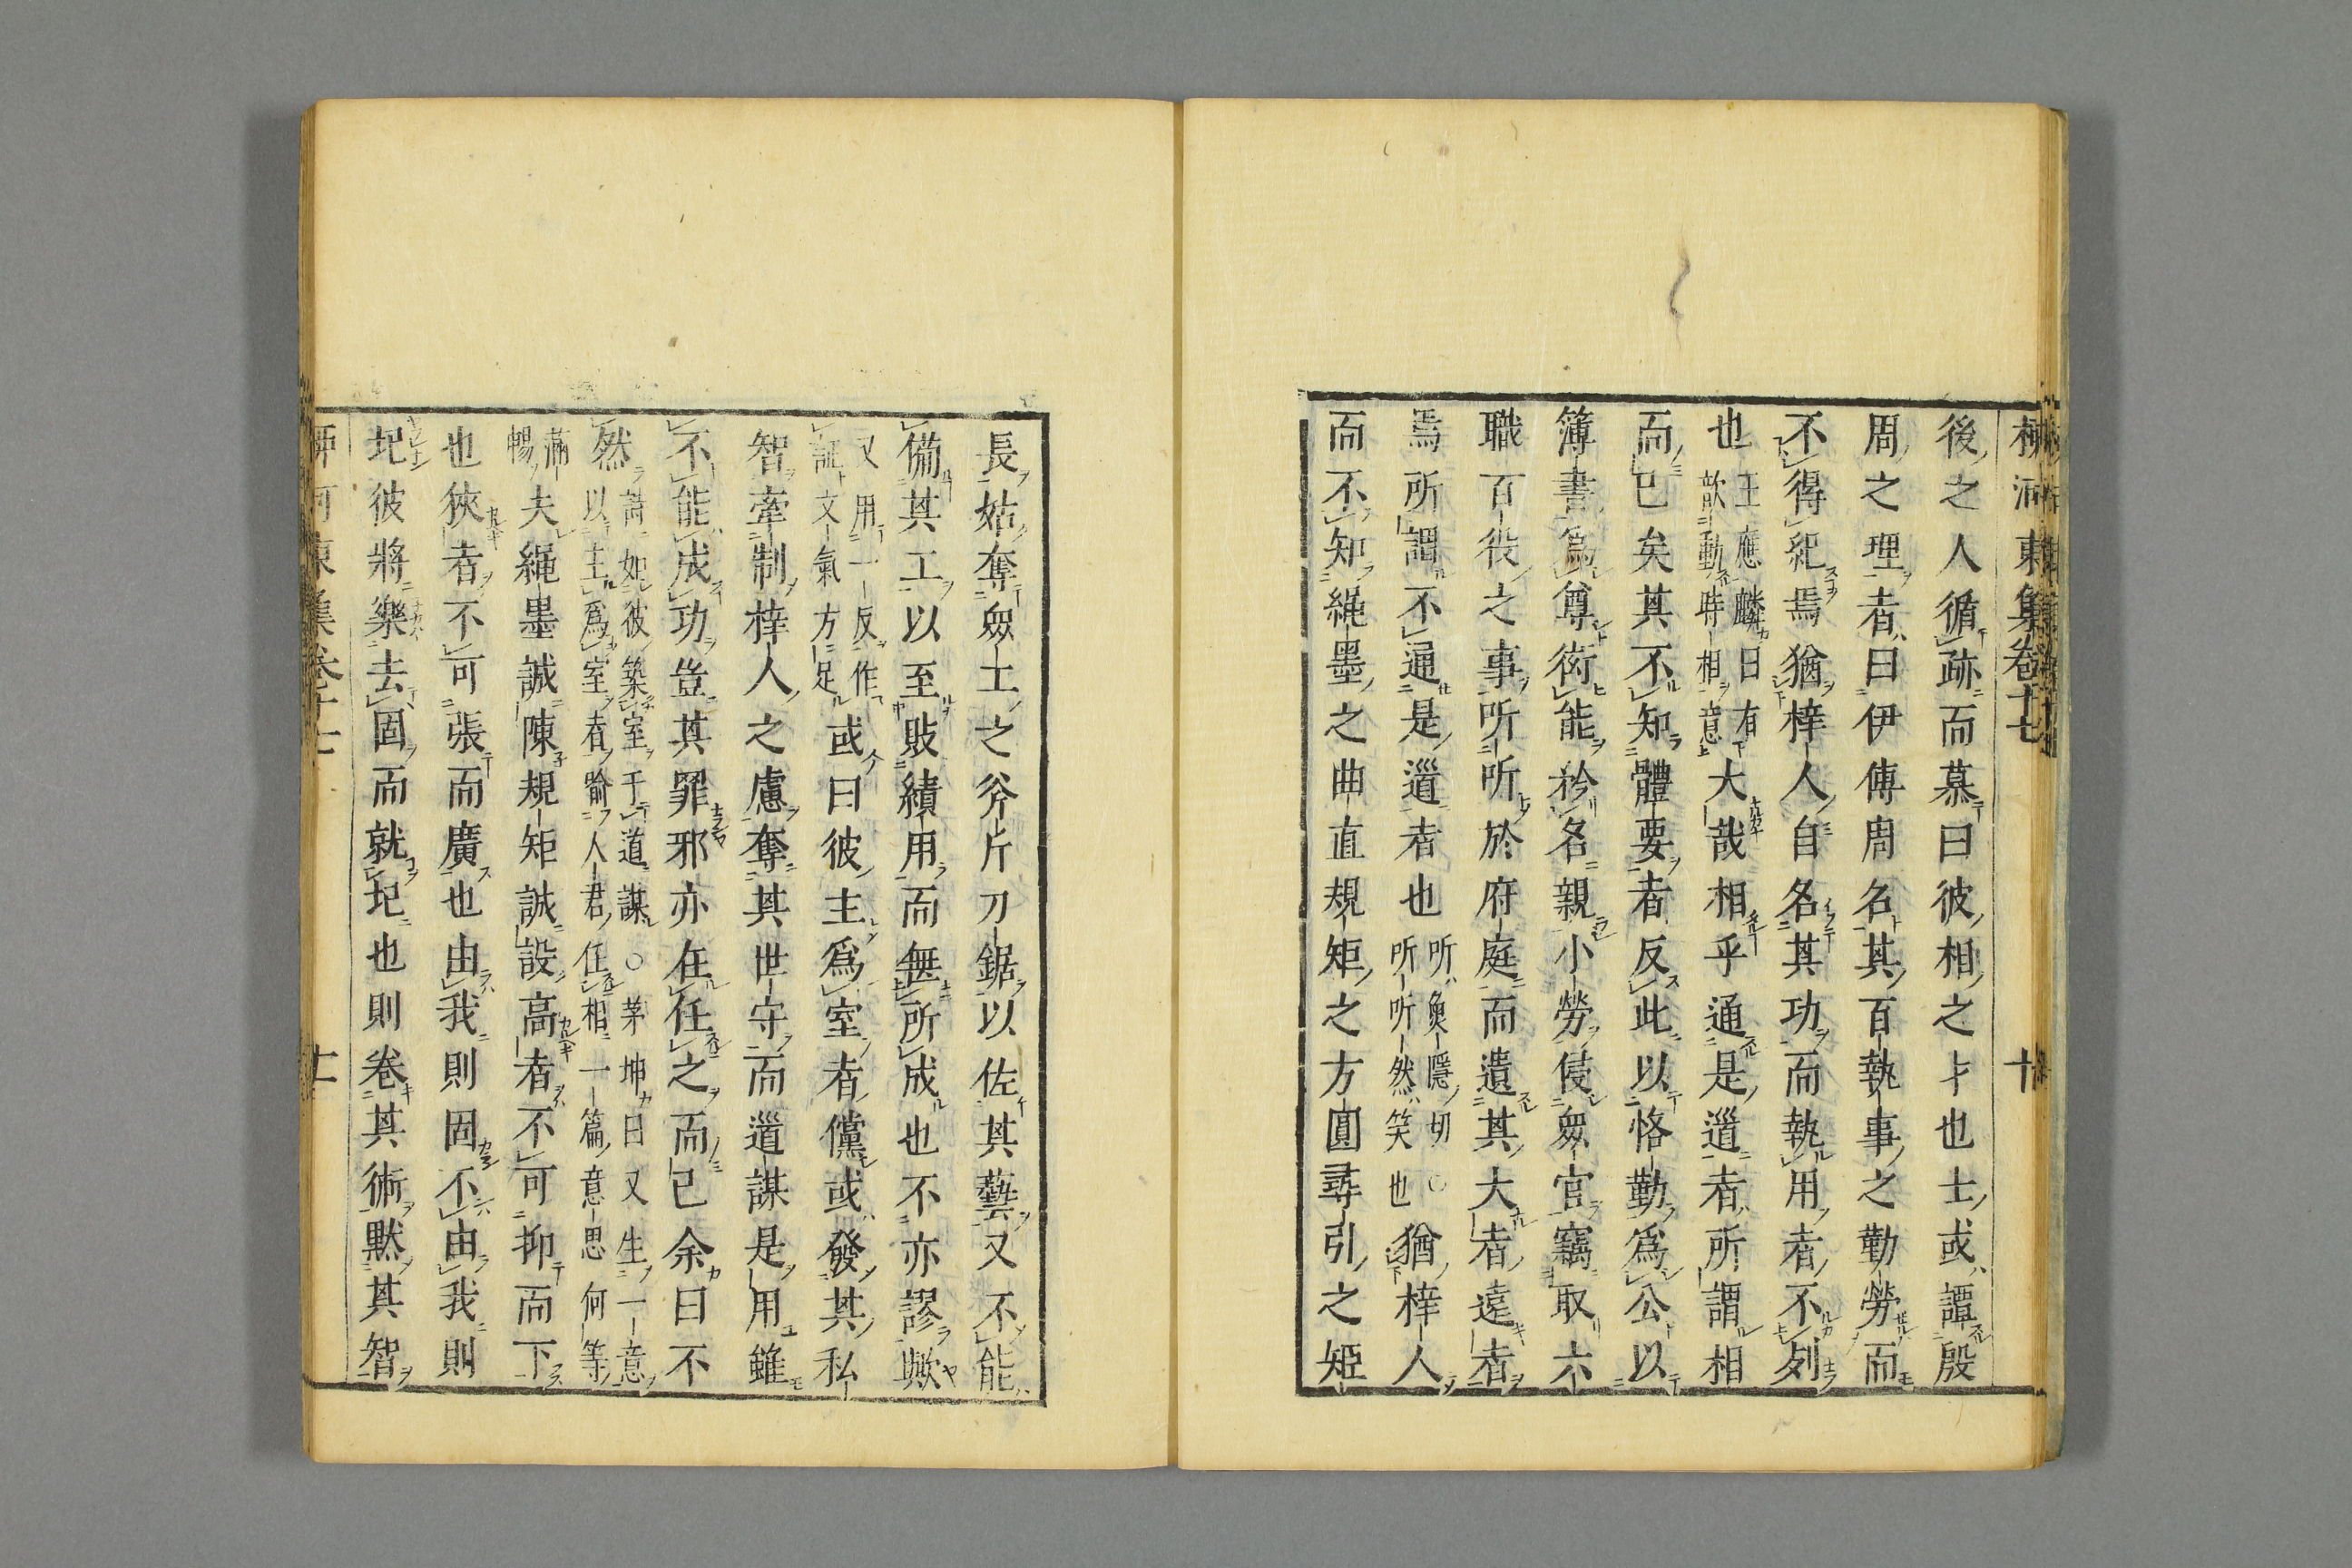 柳河東集卷十七 十
後之人循跡而慕曰彼相之才也士或譚殷
周之理者曰伊傅周名其百執事之勤勞而
不得紀焉猶梓人自名其功而執用者不列
也王應麟曰有歆動時相意大哉相乎通是道者所謂相
而已矣其不知體要者反此以恪勤爲公以
簿書爲尊衒能矜名親小勞侵衆官竊取六
職百役之事听听於府庭而遺其大者遠者
焉所謂不通是道者也听魚隱切○听听然笑也猶梓人
而不知繩墨之曲直規矩之方圓尋引之短
長姑奪衆工之斧斤刀鋸以佐其藝又不能
備其工以至敗績用而無所成也不亦謬歟
又用一反作証文氣方足或曰彼主爲室者儻或發其私
智牽制梓人之慮奪其世守而道謀是用雖
不能成功豈其罪邪亦在任之而已余曰不
然詩如彼築室于道謀○茅坤曰又生一意以主爲室者喻人君任相一篇意思何等
滿暢夫繩墨誠陳規矩誠設高者不可抑而下
也狹者不可張而廣也由我則固不由我則
圮彼將樂去固而就圮也則卷其術默其智
柳河東集卷十七 十一